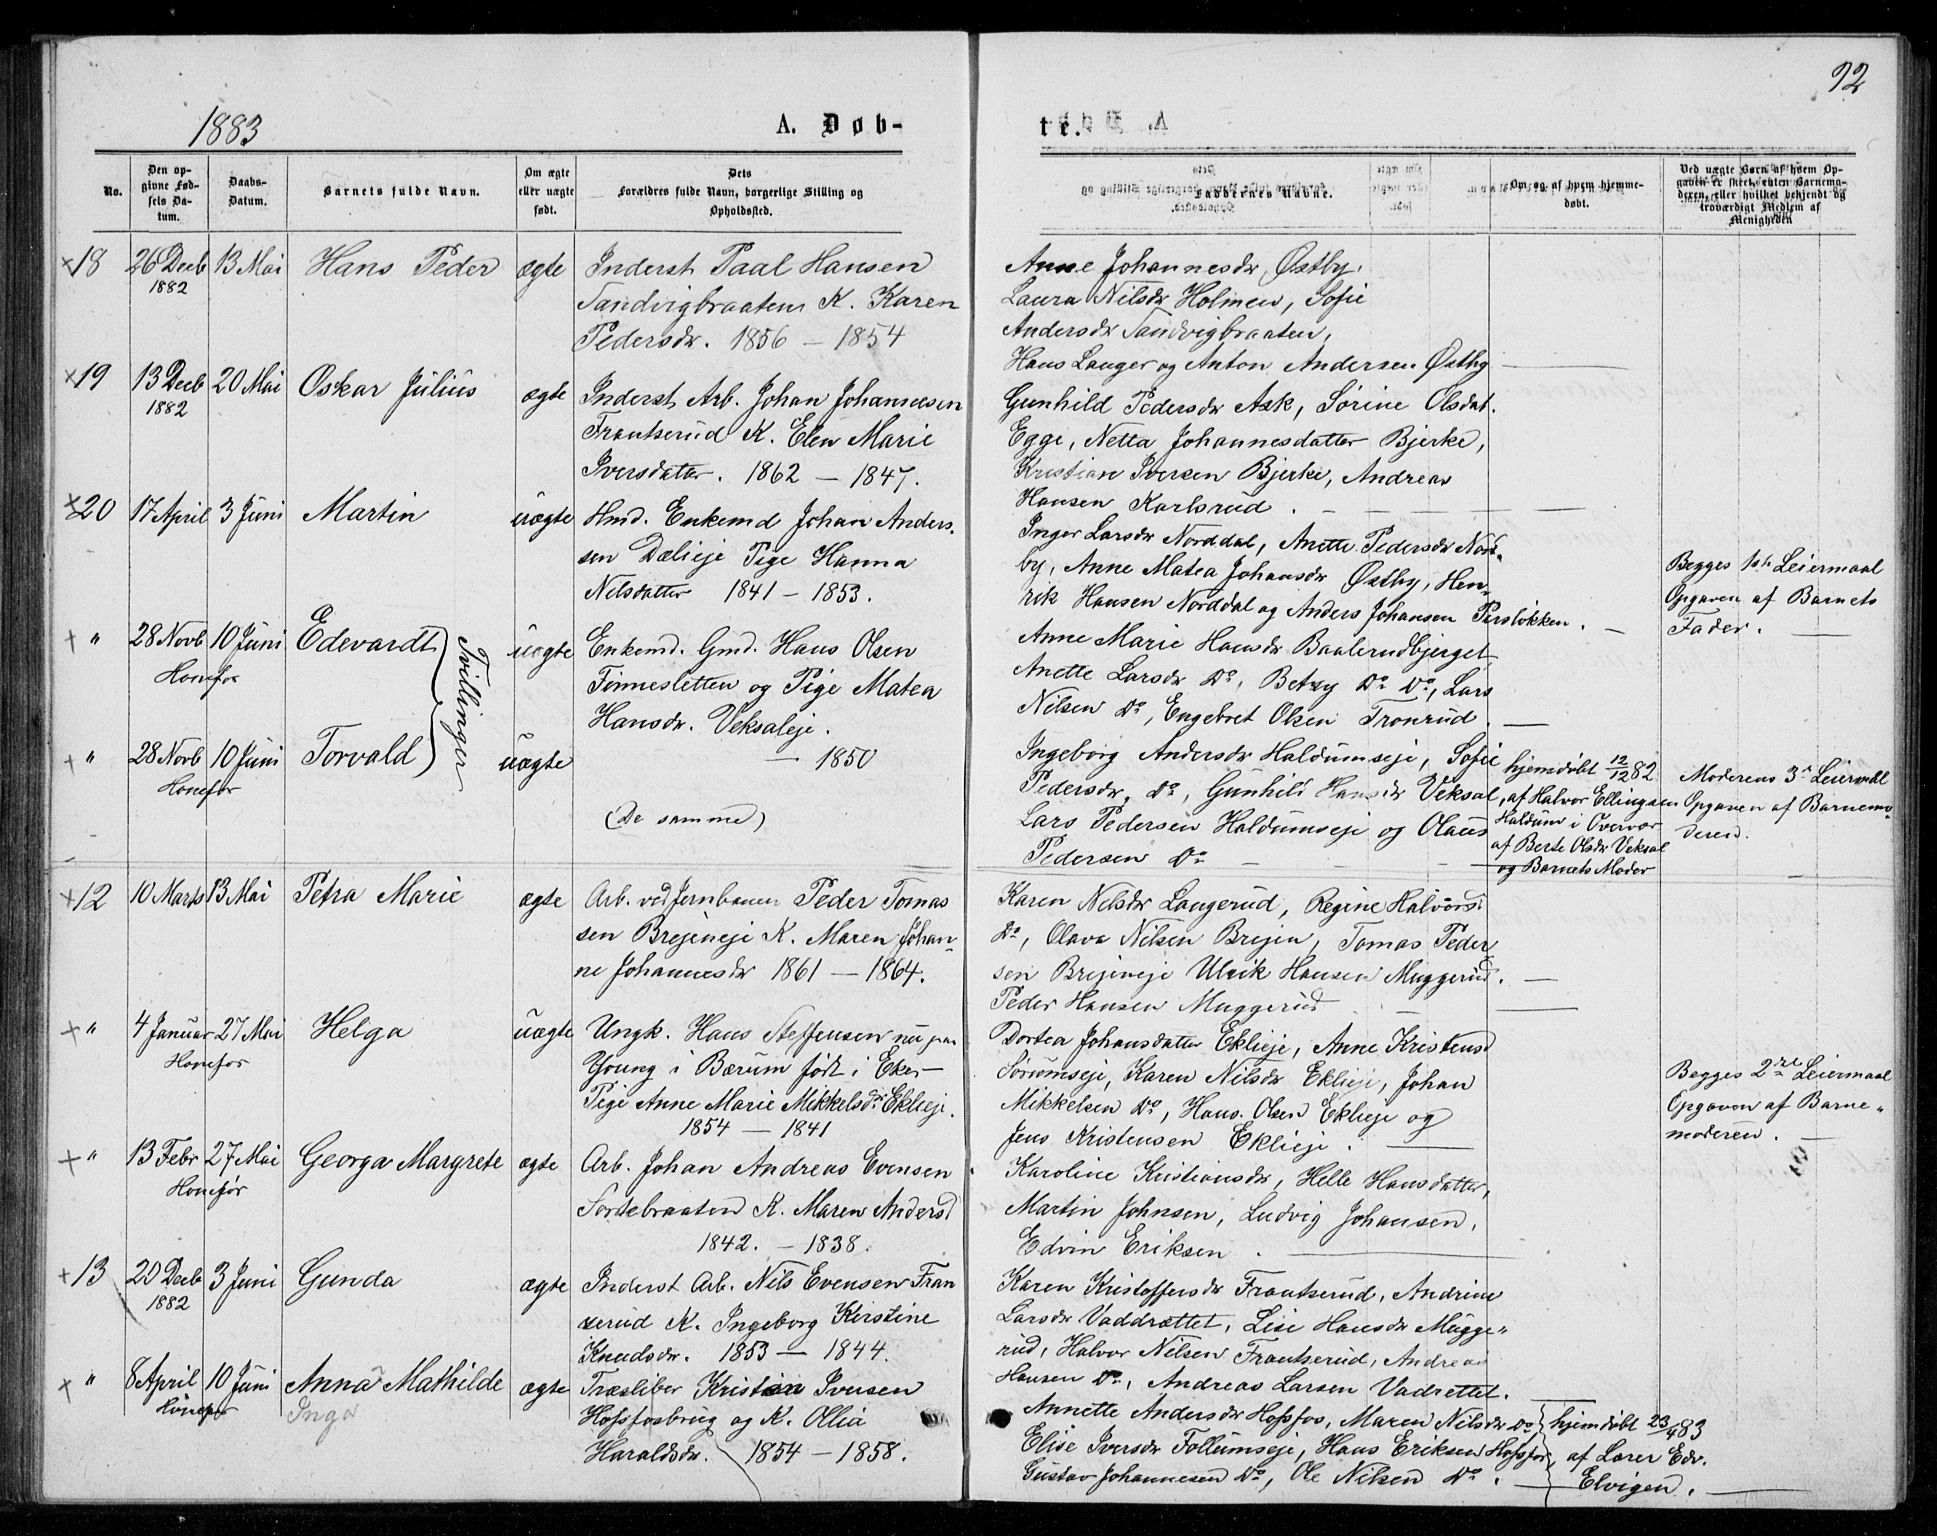 92
1883
A. Døb-
te.
No.
Den op-
givne Fød-
sels Da-
tum.
Daabs-
Datum.
Barnets fulde Navn.
Om ægte
eller uægte
født.
Dets
Forældres fulde Navn, borgerlige Stilling og
Opholdssted.
Faddernes Navne.
Om og af hvem hjemme-
døbt.
Ved uægte Børn af hvem Op-
gaven er skeet, enten Barnemo-
deren, eller hvilket bekjendt og
troværdigt Medlem af
Menigheden
18 26 Decb 13 Mai Hans Peder ægte Inderst Paal Hansen
1882
Sandvigbraaten K. Karen
Pedersdr. 1856 — 1854
Anne Johannesdr Østby,
Laura Nilsdr Holmen, Sofie
Andersdr Sandvigbraaten,
Hans Langer og Anton Andersen Østby
19 13 Decb 20 Mai Oskar Julius ægte Inderst Arb. Johan Johannesen
1882
Frantserud K. Elen Marie
Iversdatter. 1862 — 1847.
Gunhild Pedersdr Ask, Sørine Olsdat.
Egge, Netta Johannesdatter Bjerke,
Kristian Iversen Bjerke, Andreas
Hansen Karlsrud.
20 17 April 3 Juni Martin uægte Hmd. Enkemd Johan Anders-
sen Dælieje Pige Hanna
Nilsdatter 1841 — 1853.
Inger Larsdr Norddal, Anette Pedersdr Nord-
by, Anne Matea Johansdr Østby, Hen-
rik Hansen Norddal og Anders Johansen Persløkken.
Begges 1ste Leiermaal
Opgaven af Barnets
Fader.
" 28 Novb 10 Juni Edevardt uægte Enkemd. Gmd. Hans Olsen
Hønefos
Tvillinger
Finnesletten og Pige Matea
Hansdr. Veksaleje.
Anne Marie Hansdr Baalerudbjerget
Anette Larsdr Do, Betzy Do Do, Lars
Nilsen Do, Engebret Olsen Tronrud.
" 28 Novb 10 Juni Torvald uægte — 1850
Hønefos
(De samme)
Ingeborg Andersdr Haldumseje, Sofie
Pedersdr Do, Gunhild Hansdr Veksal,
Lars Pedersen Haldumseje og Olaus
Pedersen Do
hjemdøbt 12/12 82
af Halvor Ellingsen
Haldum i Overvær
af Berte Olsdr Veksal
og Barnets Moder
Moderens 3e Leiermaal
Opgaven af Barnemo-
deren.
12 10 Marts 13 Mai Petra Marie ægte Arb. ved Jernbanen Peder Tomas
sen Brejeneje K. Maren Johan-
ne Johannesdr 1861 — 1864.
Karen Nilsdr Langerud, Regine Halvorsd
Do, Olava Nilsen Brejen, Tomas Peder
sen Brejeneje Ulrik Hansen Muggerud.
Peder Hansen Muggerud
" 4 Januar 27 Mai Helga uægte Ungk. Hans Steffensen nu paa
Hønefos
Young i Bærum født i Eker—
Pige Anne Marie Mikkelsdr Eklieje.
1854 — 1841
Dortea Johansdatter Eklieje, Anne Kristensd
Sørumseje, Karen Nilsdr Eklieje, Johan
Mikkelsen Do, Hans Olsen Eklieje og
Jens Kristensen Eklieje.
Begges 2det Leiermaal
Opgaven af Barne-
moderen.
" 13 Febr 27 Mai Georga Margrete ægte Arb. Johan Andreas Evensen
Hønefos
Sortebraaten K. Maren Andersd
1842. — 1838.
Karoline Kristiansdr, Helle Hansdatter,
Martin Johnsen, Ludvig Johansen,
Edvin Eriksen.
13 20 Decb 3 Juni Gunda ægte Inderst Arb. Nils Evensen Fran
1882
serud K. Ingeborg Kirstine
Knudsdr. 1853 — 1844.
Karen Kristoffersdr Frantserud, Andrine
Larsdr Vaddrættet, Lise Hansdr Mugge-
rud, Halvor Nilsen Frantserud, Andreas
Hansen Do, Andreas Larsen Vadrettet.
" 8 April 10 Juni Anna Mathilde ægte Træsliber Kristian Iversen
Hønefos
Inga
Hofsfosbrug og K. Ollia
Haraldsdr. 1854 — 1858.
Annette Andersdr Hofsfos, Maren Nilsdr Do
Elise Iversdr Follumseje, Hans Eriksen Hofsfos,
Gustav Johannesen Do, Ole Nilsen Do.
hjemdøbt 23/4 83
af Lærer Edv.
Elvigen.